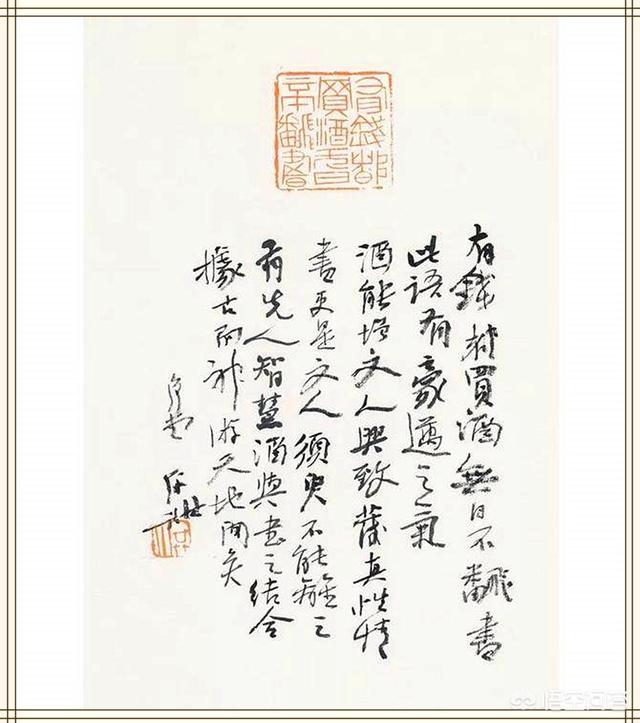 有錢都
買酒無日
不翻書
有錢都買酒無日不翻書
此語有豪邁之氣
酒能增文人興致發真性情
書更是文人須臾不能離之
有先人智慧酒與書之結合
據古而神游天地間矣
悟空问答